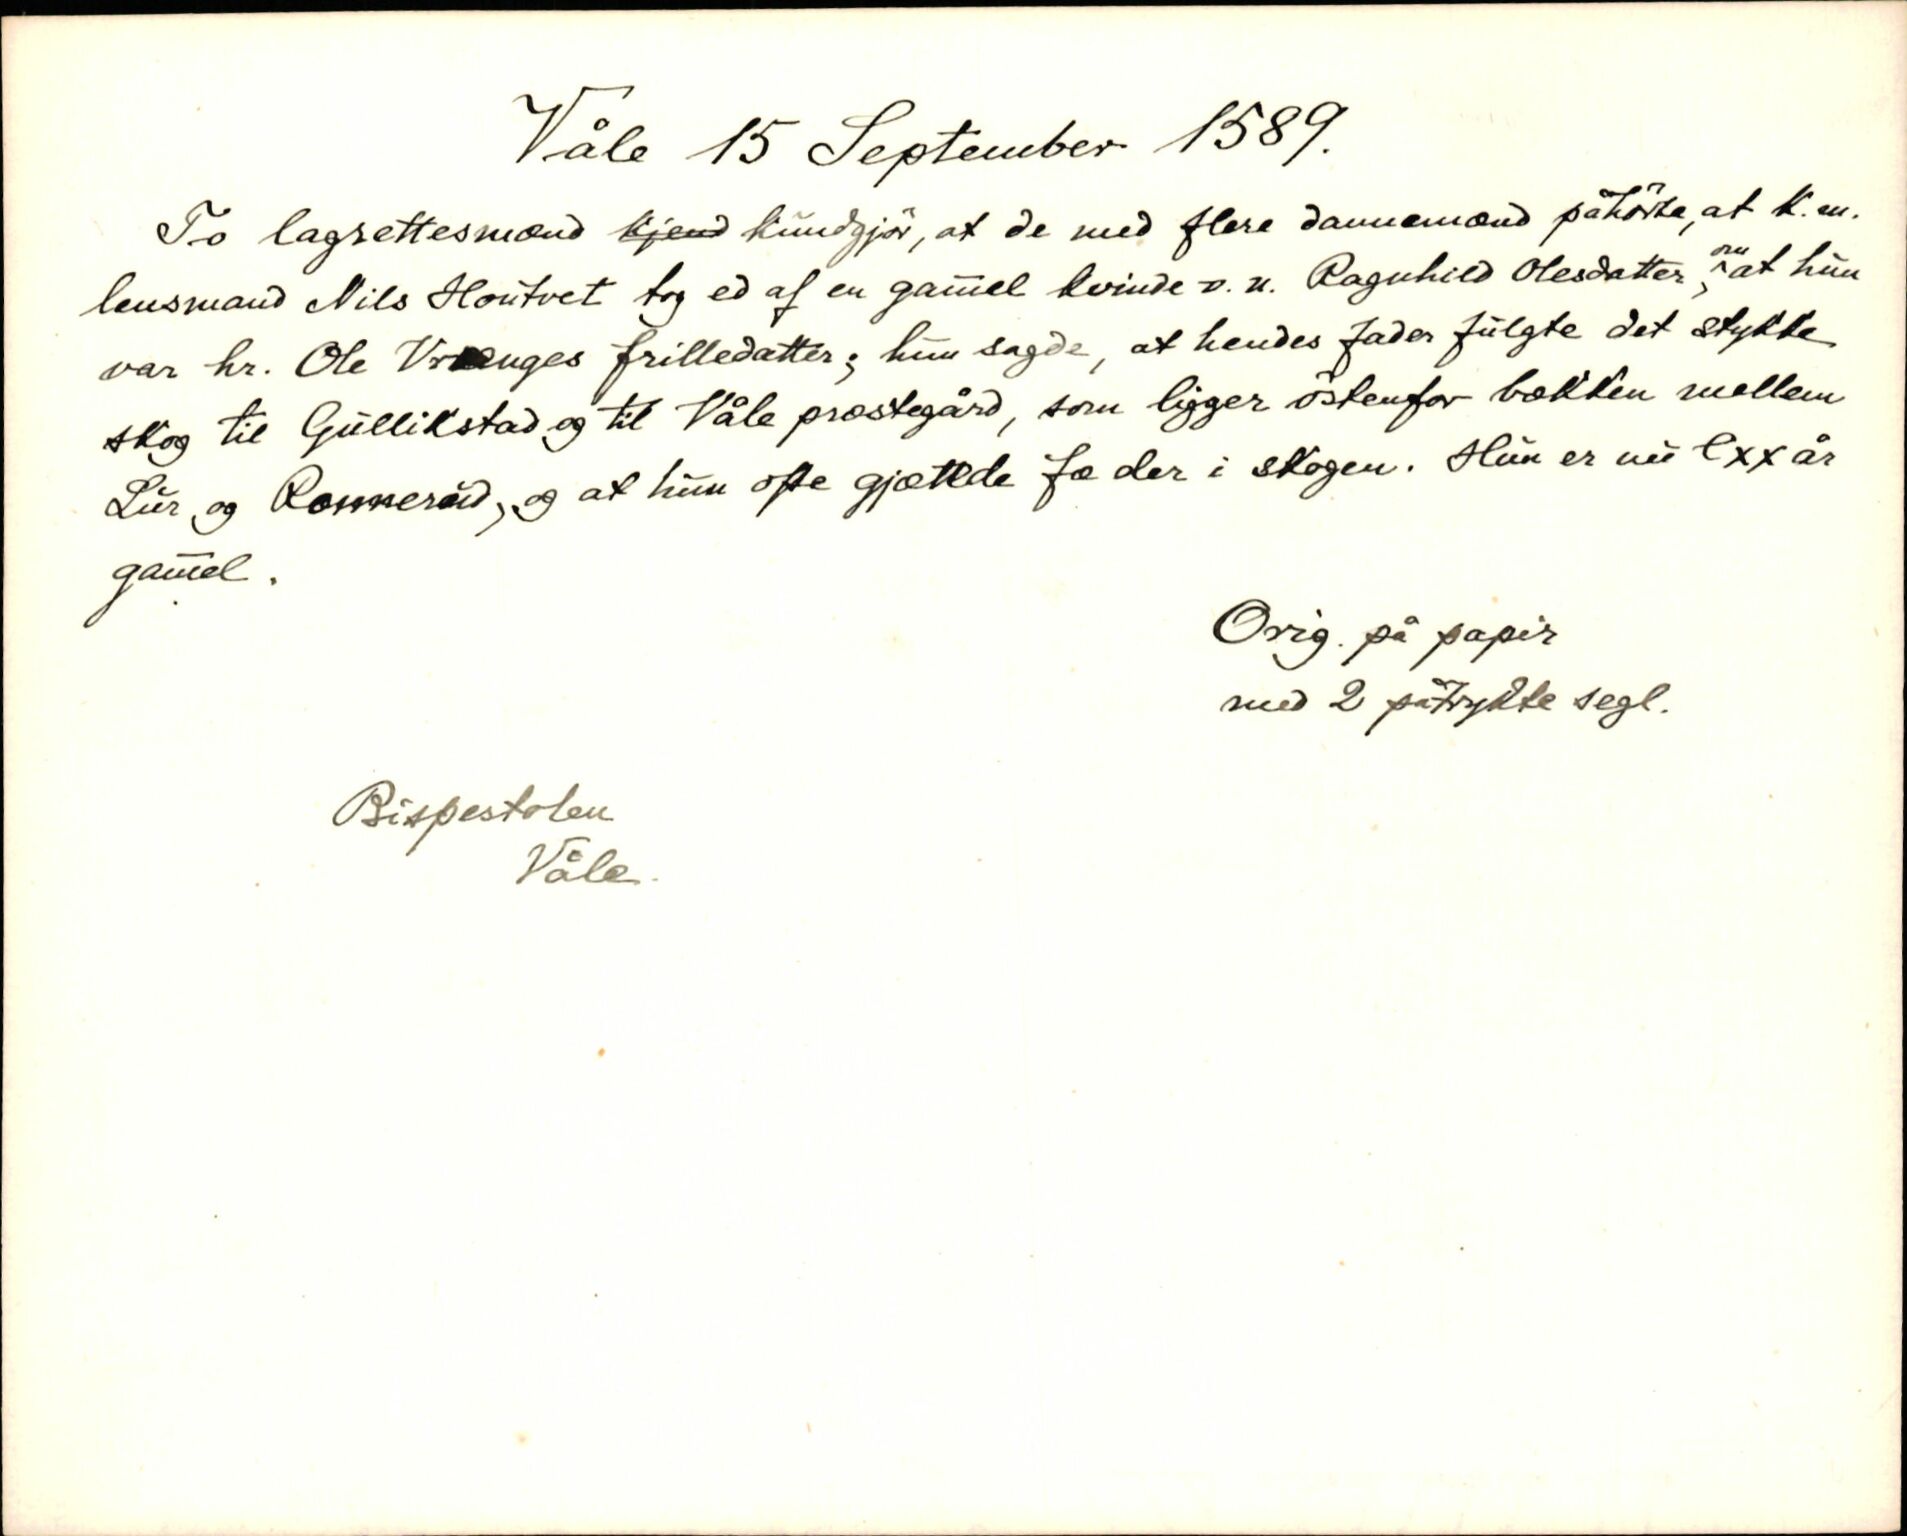 Våle 15 September 1589.
To lagrettesmænd kjend kundgjör, at de med flere dannemænd påhörte, at K. m.
lensmand Nils Houtvet tog ed af en gam̄el kvinde v. n. Ragnhild Olesdatter, om at hun
var hr. Ole Vrænges frilledatter; hun sagde, at hendes fader fulgte det stykke
skog til Gullikstad og til Våle præstegård, som ligger östenfor bækken mellem
Lur og Rønnerud, og at hun ofte gjætede fæ der i skogen. Hun er nu lxx år
gam̄el.
Orig. på papir
med 2 påtrykte segl.
Bispestolen
Våle.